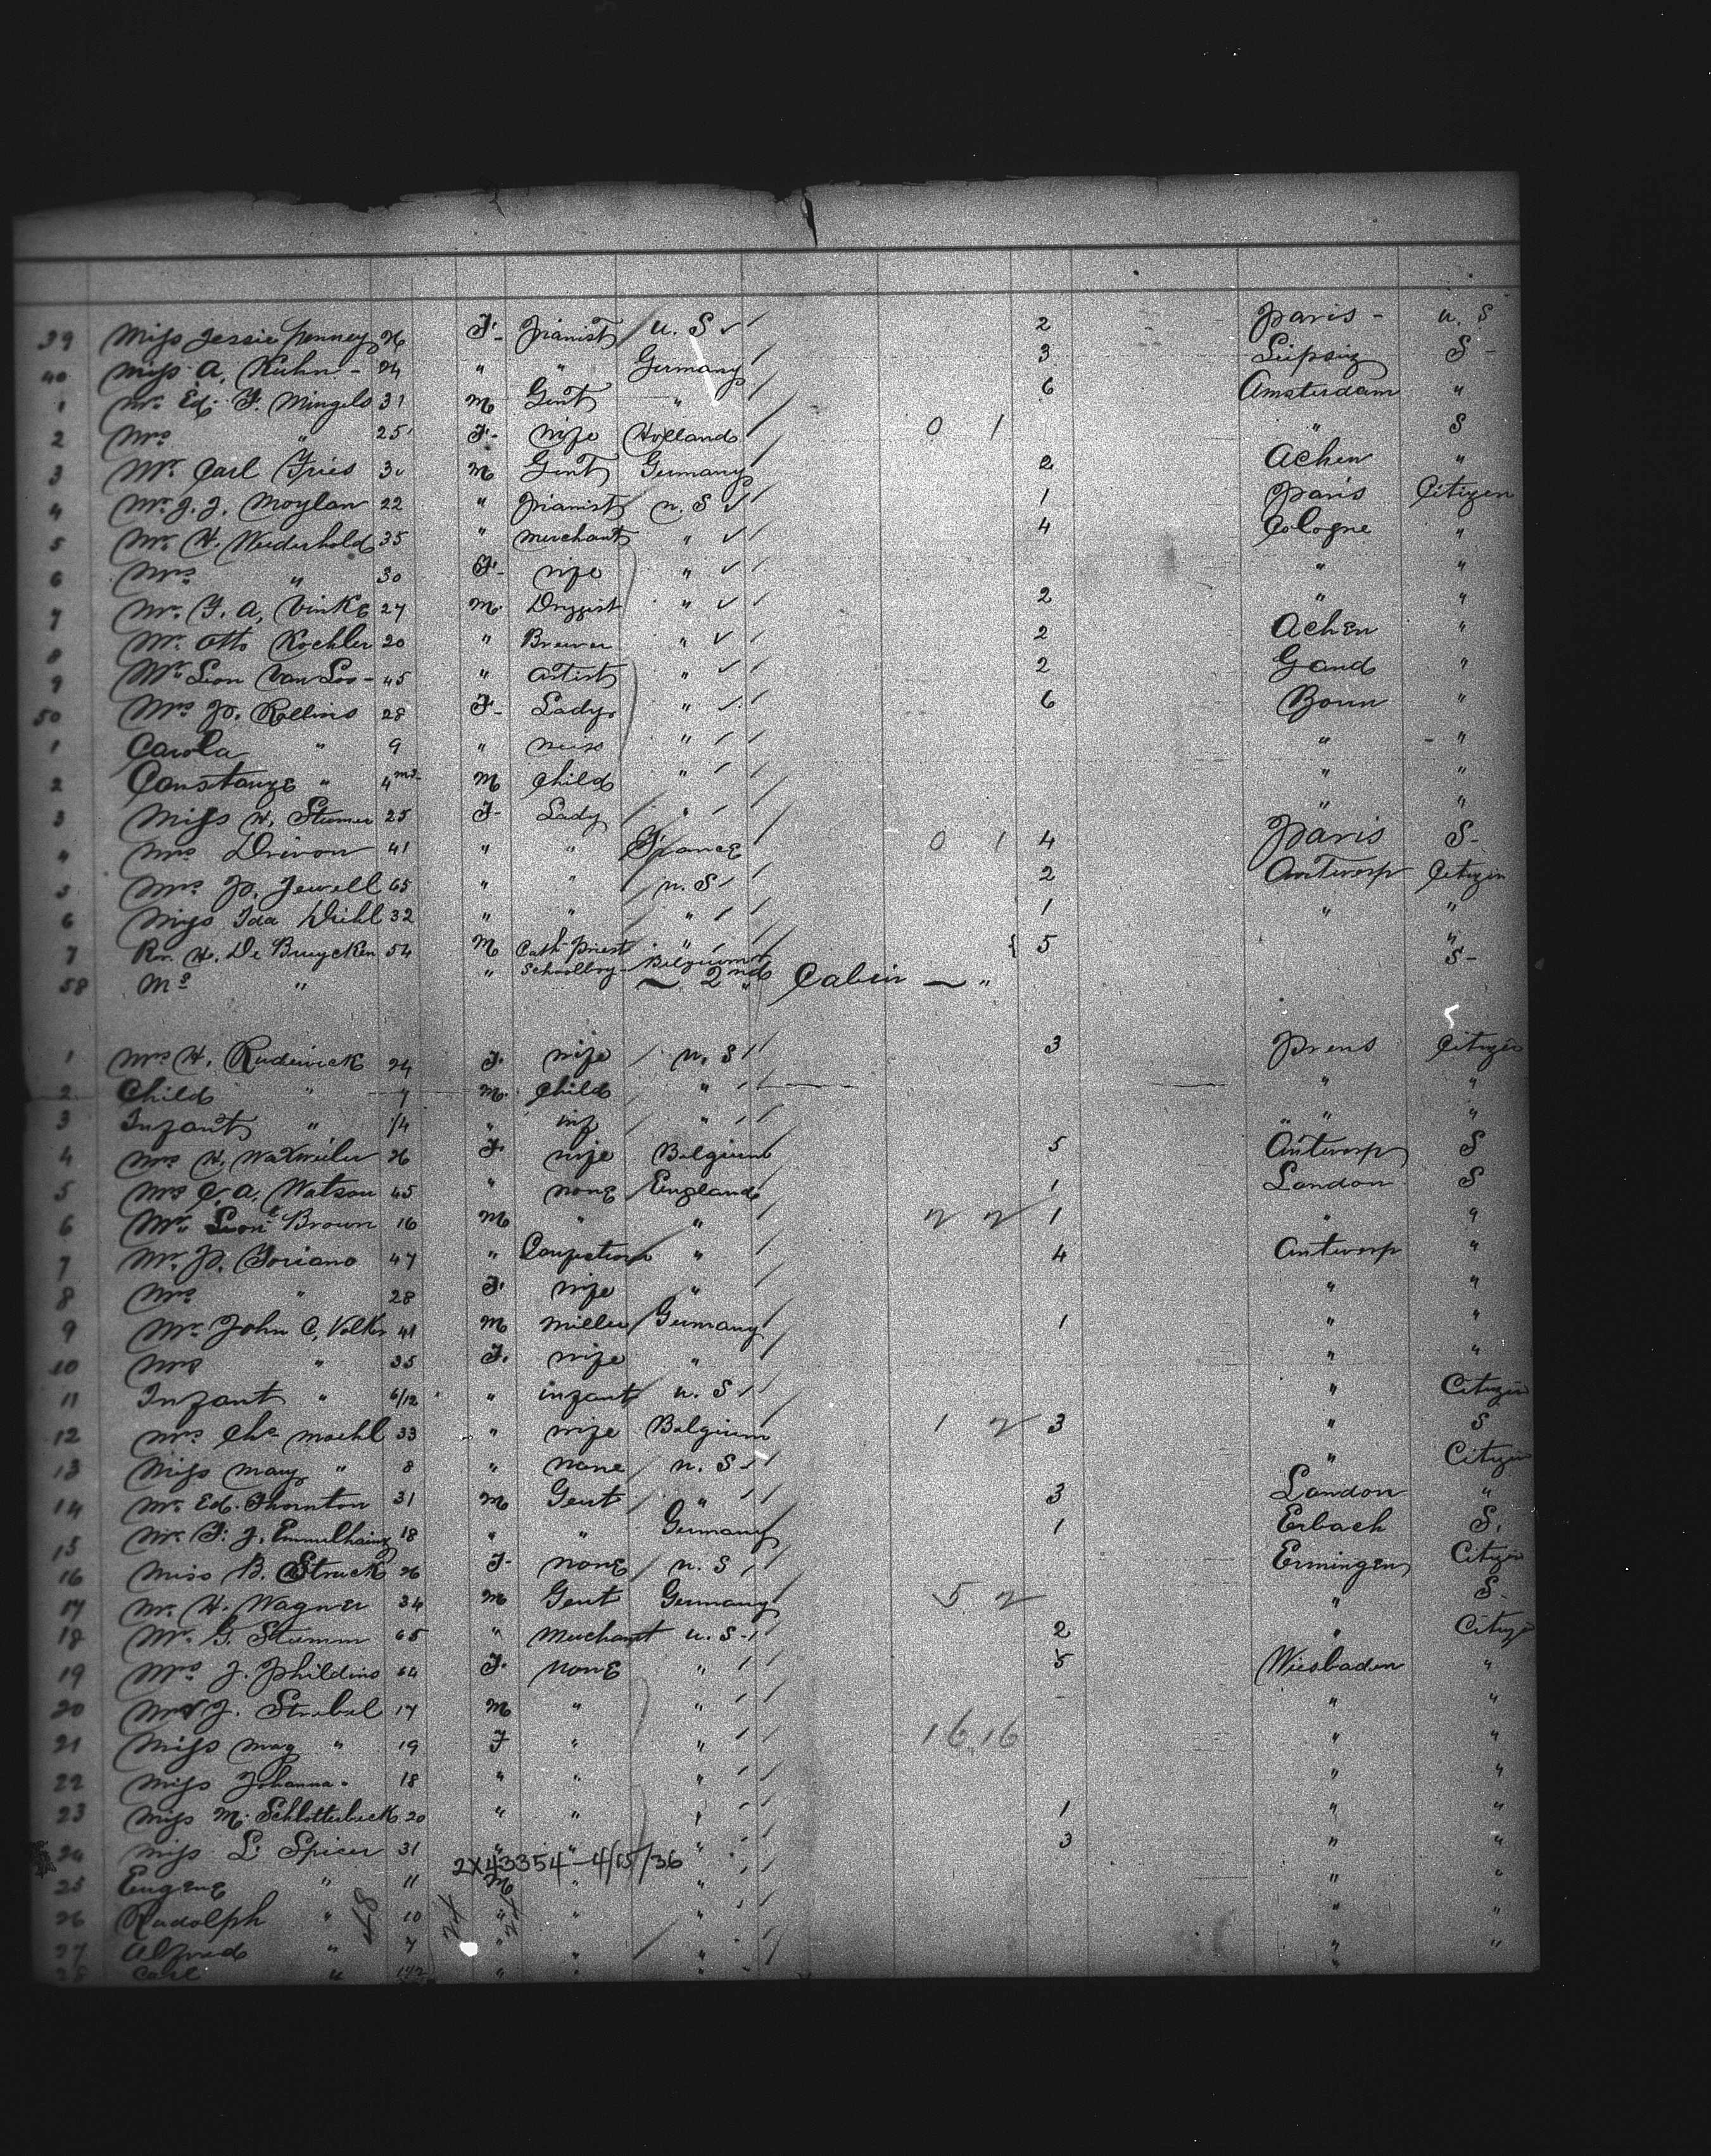 39 Miss Jessie Penney 26 F- Pianist U. S 2 Paris - U. S
40 Miss A. Kuhn - 24 " " Germany 3 Leipzig S -
1 Mr. Ed. F. Mingels 31 M Gent " 6 Amsterdam "
2 Mrs " 25 F- Wife Holland 0 1 " S
3 Mr. Carl Fries 30 M Gent Germany 2 Achen "
4 Mr. J. J. Moylan 22 " Pianist U. S 1 Paris Citizen
5 Mr. H. Wiederhold 35 " Merchant " 4 Cologne "
6 Mrs " 30 F- Wife " " "
7 Mr. F. A. Vinke 27 M. Druggist " 2 " "
8 Mr. Otto Kochler 20 " Brewer " 2 Achen "
9 Mr. Leon Van Loo - 45 " Artist " 2 Gand "
50 Mrs P. Rollins 28 F- Lady " 6 Bonn "
1 Carola " 9 " Miss " " - "
2 Constanze " 4 ms M Child " " "
3 Miss H. Stumer 25 F- Lady " " "
4 Mrs Drivon 41 " " France 0 1 4 Paris S-
5 Mrs P. Jewell 65 " " U. S 2 Antwerp Citizen
6 Miss Ida Diehl 32 " " " 1 " "
7 Rev. H. De Bruycken 54 M Cath Priest " 5 "
58 Ms " " Schoolboy Belgium " S-
2nd Cabin
1 Mrs H. Rudewick 24 F. Wife U. S 3 Prens Citizen
2 Child " M. Child " " "
3 Infant " 1/4 " inf " " "
4 Mrs H. Waxweiler 26 F. Wife Belgium 5 Antwerp S
5 Mrs C. A. Watson 45 " None England 1 London S
6 Mr. Leon Brown 16 M " " 1 "
7 Mr. P. Foriano 47 " " 4 Antwerp "
8 Mrs " 28 F. Wife " " "
9 Mr. John C. Volker 41 M Miller Germany 1 " "
10 Mrs " 35 F. Wife " " "
11 Infant " 6/12 " infant U. S " Citizen
12 Mrs Chs Maehl 33 " Wife Belgium 1 2 3 " S
13 Miss Mary " 8 " None U. S " Citizen
14 Mr. Ed. Thornton 31 M Gent " 3 London "
15 Mr. F. J. Emmelhainz 18 " " Germany 1 Erbach S.
16 Miss B. Struck 26 F- None U. S Ermingen Citizen
17 Mr. H. Wagner 34 M Gent Germany 5 2 " S.
18 Mr. G. Stumm 65 " Merchant U. S 2 " Citizen
19 Mrs J. Phildius 64 F. None " 5 Wiesbaden "
20 Mr J. Strobel 17 M " " " "
21 Miss May " 19 F " " 16 16 " "
22 Miss Johanna " 18 " " " " "
23 Miss M. Schlotterbeck 20 " " " 1 " "
24 Miss L. Spicer 31 " " " 3 " "
2X43354-4/15/36
25 Eugene " 11 M " " " "
26 Rudolph " 10 " " " " "
27 Alfred " 7 " " " " "
28 Carl " " " " "
48 24 24